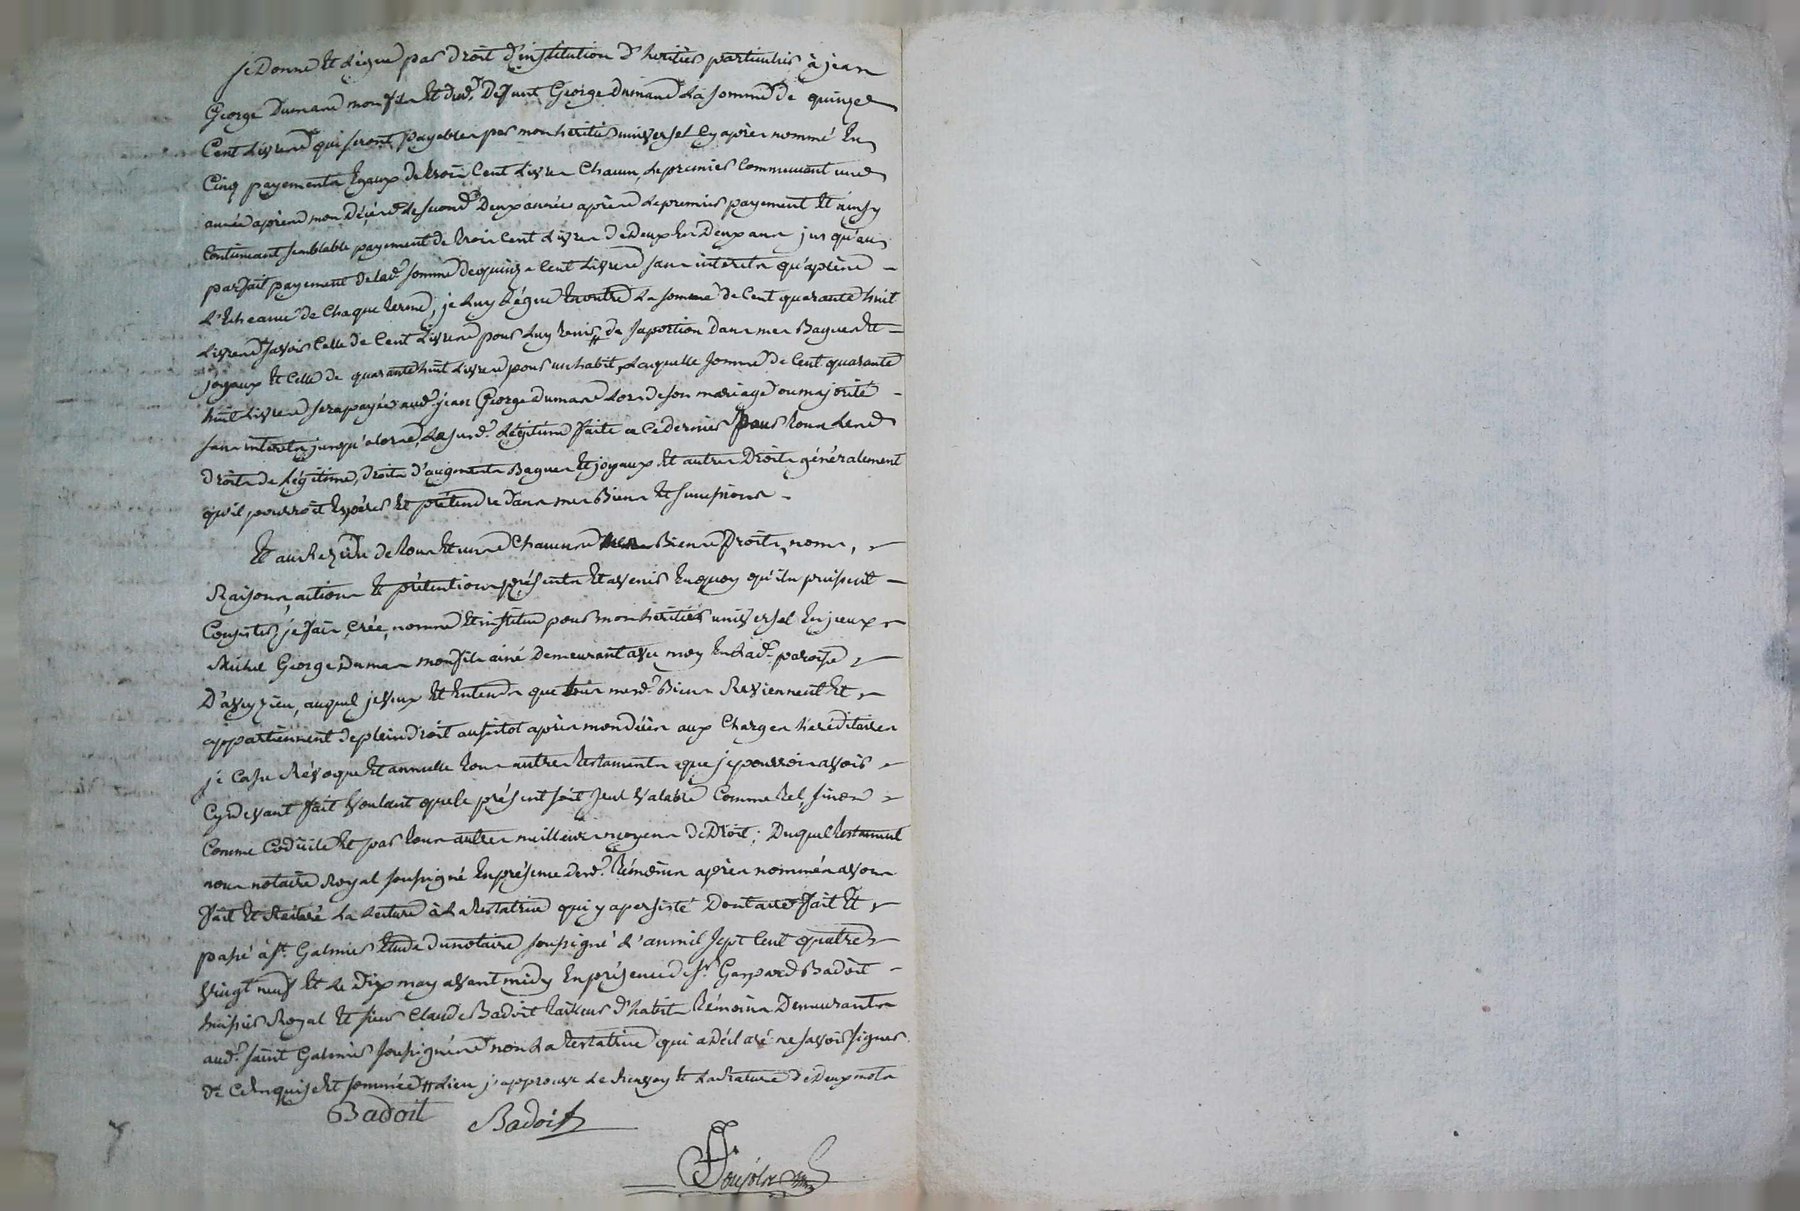 je Donne et Légue par droit d'institution d'heritier particulier à jean
George Dumand mon fils et dud.t Defunt George dumand la somme de quinze
Cent Livres qui seront payables par mon heritier universel Cy après nommé En
Cinq payements Egaux de trois Cent Livres Chacun, le premier Commencant une
année après mon Décès le second Deux années après le premier payement Et ainsy
Continuant semblable payement de trois Cent Livres de Deux En Deux ans jus qu'au
parfait payement de lad.e somme de quinze Cent Livres sans interets qu'après
L'Echeance de Chaque terme, je Luy Légue En outre La somme de Cent quarante huit
Livres savoir Celle de Cent Livres pour Luy tenir # de sa portion dans mes Bagues Et
joyaux et Celle de quarante huit Livres pour un habit, Laquelle somme de Cent quarante
huit Livres sera payée aud.t jean George dumand Lors de son mariage ou majorité
sans interets jusqu'alors, La susd.e Légitime faite a Ce dernier pour tous ses
droits de Légitime, droits d'augments Bagues Et joyaux Et autres Droits généralement
qu'il pourroit Espérer Et prétendre dans mes Biens Et successions
Et au Rezidu de tous Et uns Chacuns Biens Droits, noms,
Raisons, actions Et prétentions présents Et avenir En quoy qu'ils puissent
Consister, je fais, Crée, nomme Et institue pour mon heritier universel
Michel George Dumas mon fils ainé Demeurant avec moy En Lad.e paroisse
D'aveyzieu, auquel je veux Et Entends que tous mesd.ts Biens Reviennent Et
appartiennent de plein droit aussitot après mon décès aux Charges héréditaires
je Casse Révoque Et annulle tous autres testaments que je pourrois avoir
Cy devant fait voulant que le présent soit seul valable Comme tel, sinon
Comme Codicile Et par tous autres meilleurs moyens de Droit; Duquel testament
nous notaire Royal soussigné En présence desd.ts témoins après nommés avons
fait Et Réitéré La Lecture à La testatrice qui y a persisté Dont acte fait Et
passé à S.t Galmier Etude du notaire soussigné L'an mil sept Cent quatre
vingt neuf Et Le Dix may avant midy En présence de S.r Gaspard Badoit
huissier Royal Et sieur Claude Badoit tailleur d'habits témoins Demeurants
aud.t saint Galmier soussignés non La testatrice qui a déclaré ne savoir signer
de Ce Enquise Et sommée # Lieu j'approuve Le Renvoy Et La Rature de Deux mots
Badoit Badoit